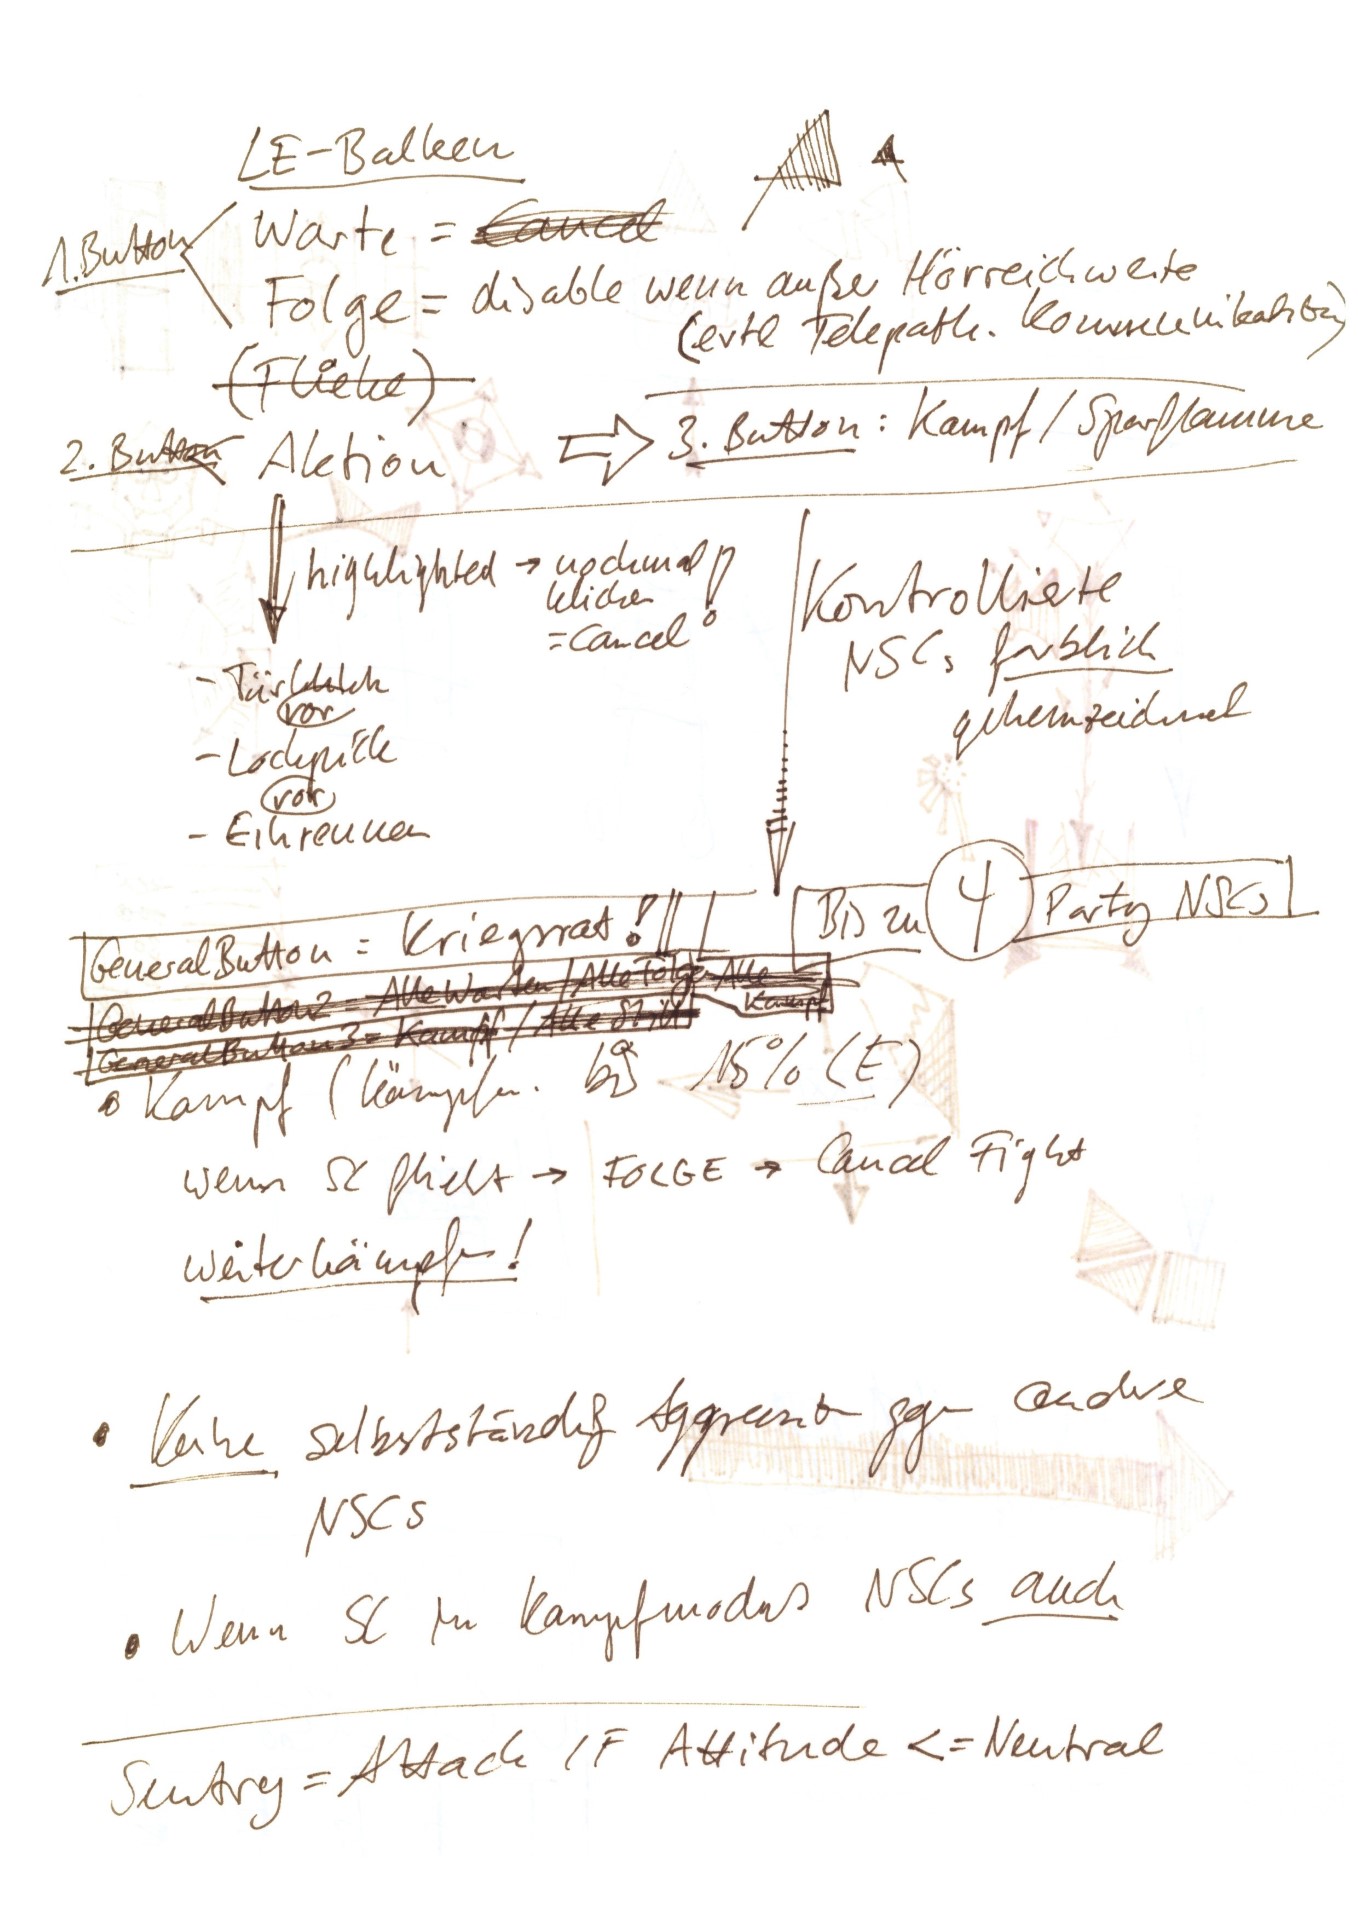 LE-Balken
1. Button
Warte = Cancel
Folge = disable wenn außer Hörreichweite
(evtl Telepath. Kommunikation)
(Fliehe)
2. Button Aktion
3. Button: Kampf / Sparflamme
highlighted → nochmal
klicken
= Cancel!
Kontrollierte
NSCs farblich
gekennzeichnet
-
vor
- Lockpick
vor
- Einrennen
Bis zu 4 Party NSCs
GeneralButton = Kriegsrat!!!
GeneralButton2 = Alle Warten / Alle Folge Alle
Kampf
GeneralButton3 = Kampf / Alle Still
• Kampf (kämpfen bis 15% (E)
wenn SC flieht → FOLGE → Cancel Fight
weiterkämpfen!
• Keine selbstständig Aggression gegen andere
NSCs
• Wenn SC im Kampfmodus NSCs auch
Sentry = Attack IF Attitude <= Neutral